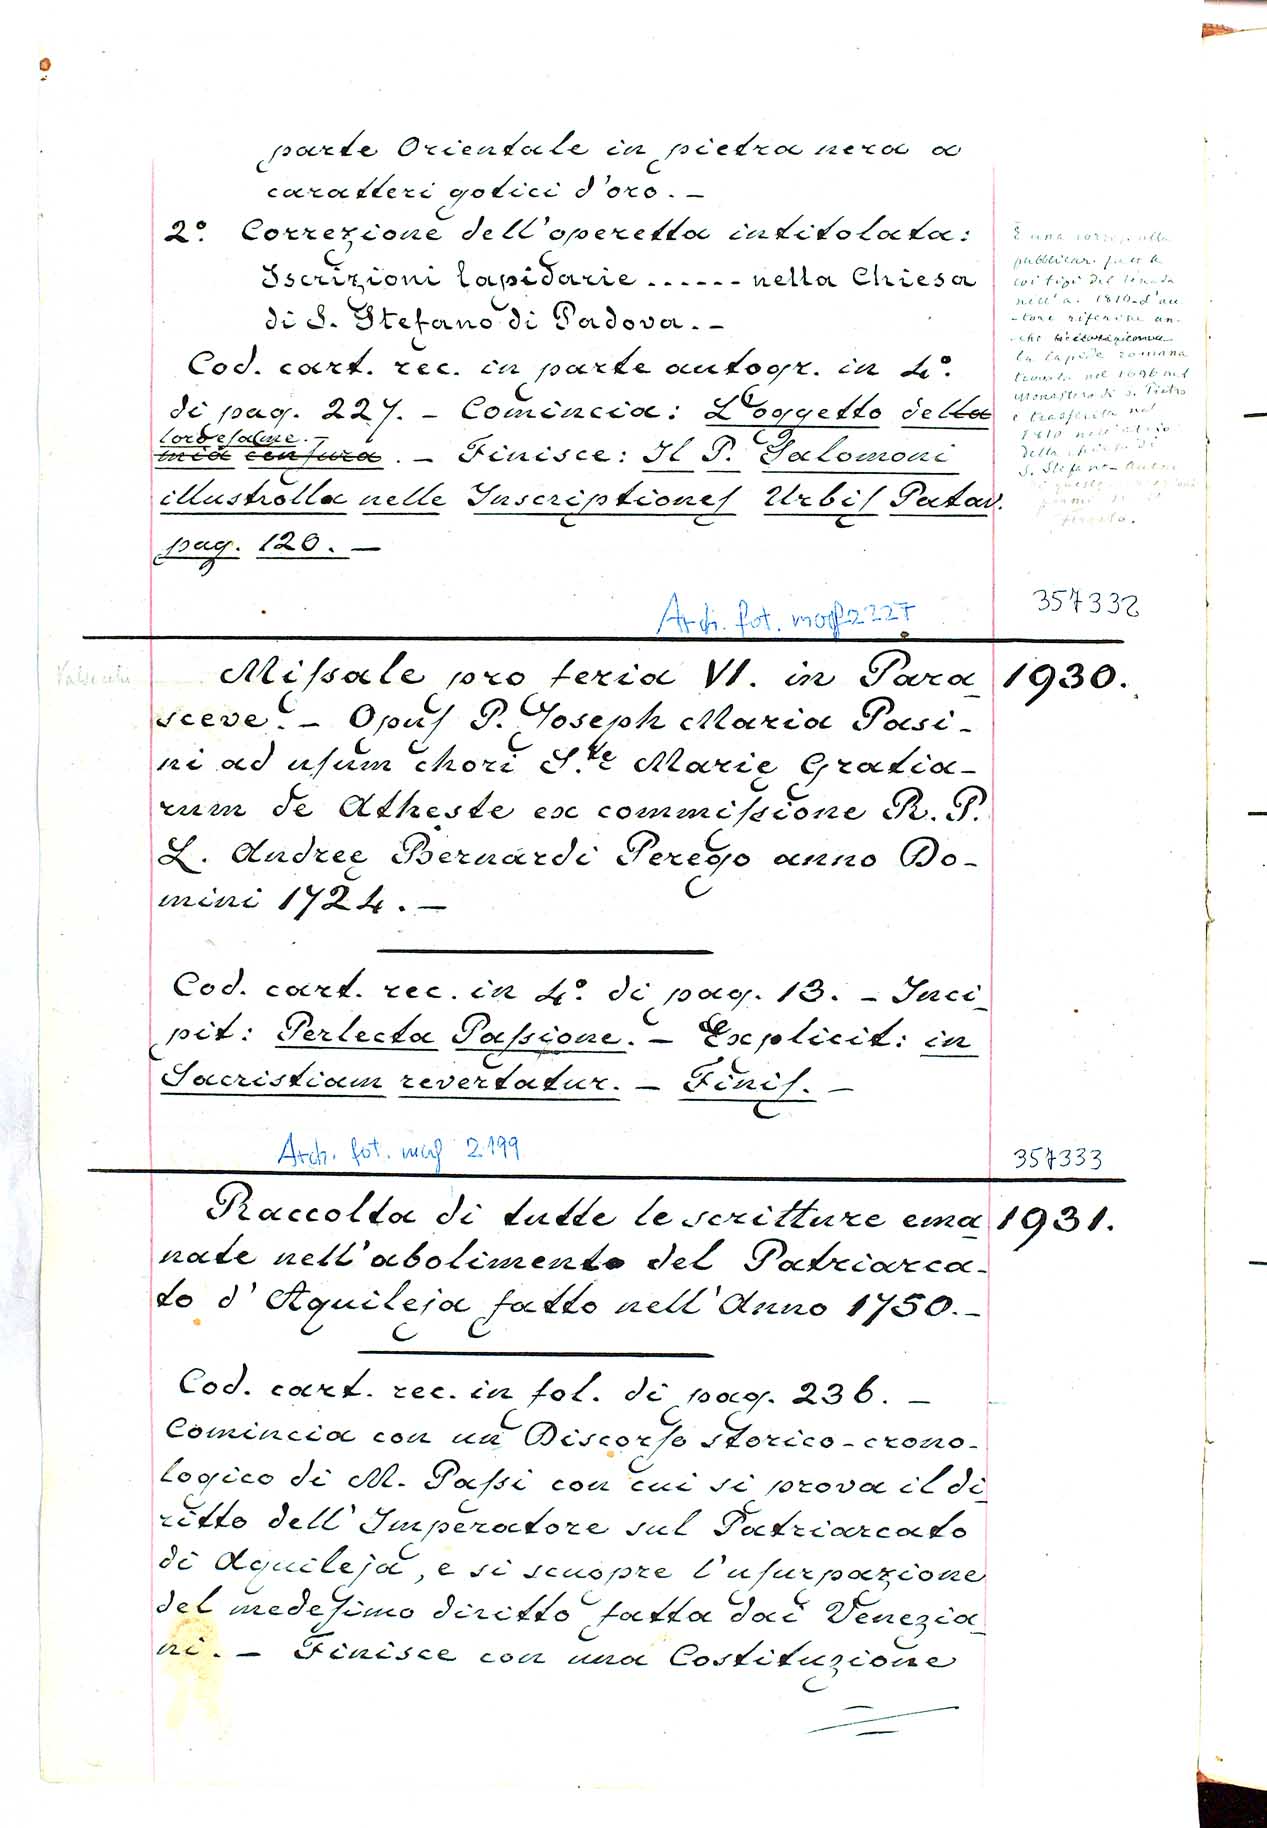 parte Orientale in pietra nera a
caratteri gotici d'oro. –
2.º Correzione dell'operetta intitolata:
Iscrizioni lapidarie ...... nella Chiesa
di S. Stefano di Padova. –
Cod. cart. rec. in parte autogr. in 4.º
di pag. 227. – Comincia: L'oggetto della
mia censura. – Finisce: Il P. Salomoni
illustrolla nelle Inscriptiones Urbis Patav.
pag. 120. –
È una
pubblicar.
coi tipi del
nell'a. 1810
-tore riferire an-
-che
la lapide romana
trovata nel 1696 nel
Monastero di S. Pietro
e trasferita nel
1810 nell'
della chiesa di
S. Stefano
357332
Arch. fot. mag 2227
Valsecchi
Missale pro feria VI. in Para 1930.
sceve. – Opus P. Joseph Maria Pasi-
ni ad usum chori S.te Marię Gratia-
rum de Atheste ex commissione R. P.
L. Andreę Bernardi Perego anno Do-
mini 1724. –
Cod. cart. rec. in 4.º di pag. 13. – Inci
pit: Perlecta Passione. – Explicit: in
Sacristiam revertatur. – Finis. –
Arch. fot. mag 2199
357333
Raccolta di tutte le scritture ema 1931.
nate nell'abolimento del Patriarca-
to d'Aquileja fatto nell'Anno 1750. –
Cod. cart. rec. in fol. di pag. 236. –
Comincia con un Discorso storico-crono-
logico di M. Passi con cui si prova il di
ritto dell'Imperatore sul Patriarcato
di Aquileja, e si scuopre l'usurpazione
del medesimo diritto fatta dai Venezia
ni. – Finisce con una Costituzione